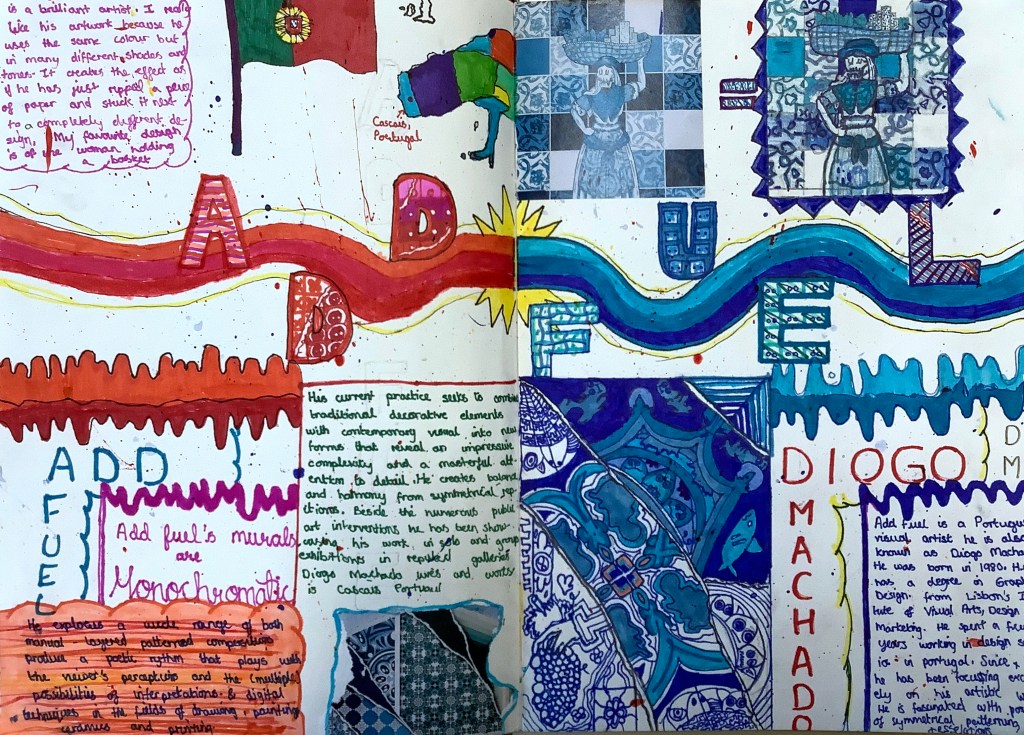 is a brilliant artist. I really
like his artwork because he
uses the same colour but
in many different shades and
tones. It creates the effect as
if he has just ripped a piece
of paper and stuck it next
to a completely different de-
sign. My favourite design
is of the woman holding
a basket
Cascais,
Portugal
ADD
FUEL
His current practice seeks to combine
traditional decorative elements
with contemporary visual into new
forms that reveal an impressive
complexity and a masterful att-
ention to detail. He creates balance
and harmony from symmetrical rep-
etitions. Beside the numerous public
art interventions he has been show-
casing his work in solo and group
exhibitions in reputed galleries
Diogo Machado lives and works
is Cascais Portugal
ADD
FUEL
Add fuel's murals
are
Monochromatic
He explores a wide range of both
manual layered patterned compositions
produce a poetic rythm that plays with
the viewer's perception and the (multiple)
possibilities of interpretations. & digital
techniques in the fields of drawing, painting
ceramics and printing.
DIOGO
MACHADO
D
M
Add fuel is a Portugu
visual artist he is also
known as Diogo Macha
He was born in 1980. He
has a degree in Graph
Design. from Lisbon's I
tute of Visual Arts, Design
Marketing. He spent a few
years working in design s
io in portugal. Since
he has been focusing exc
ely on his artistic w
He is fascinated with po
of symmetrical patterning
tesselations